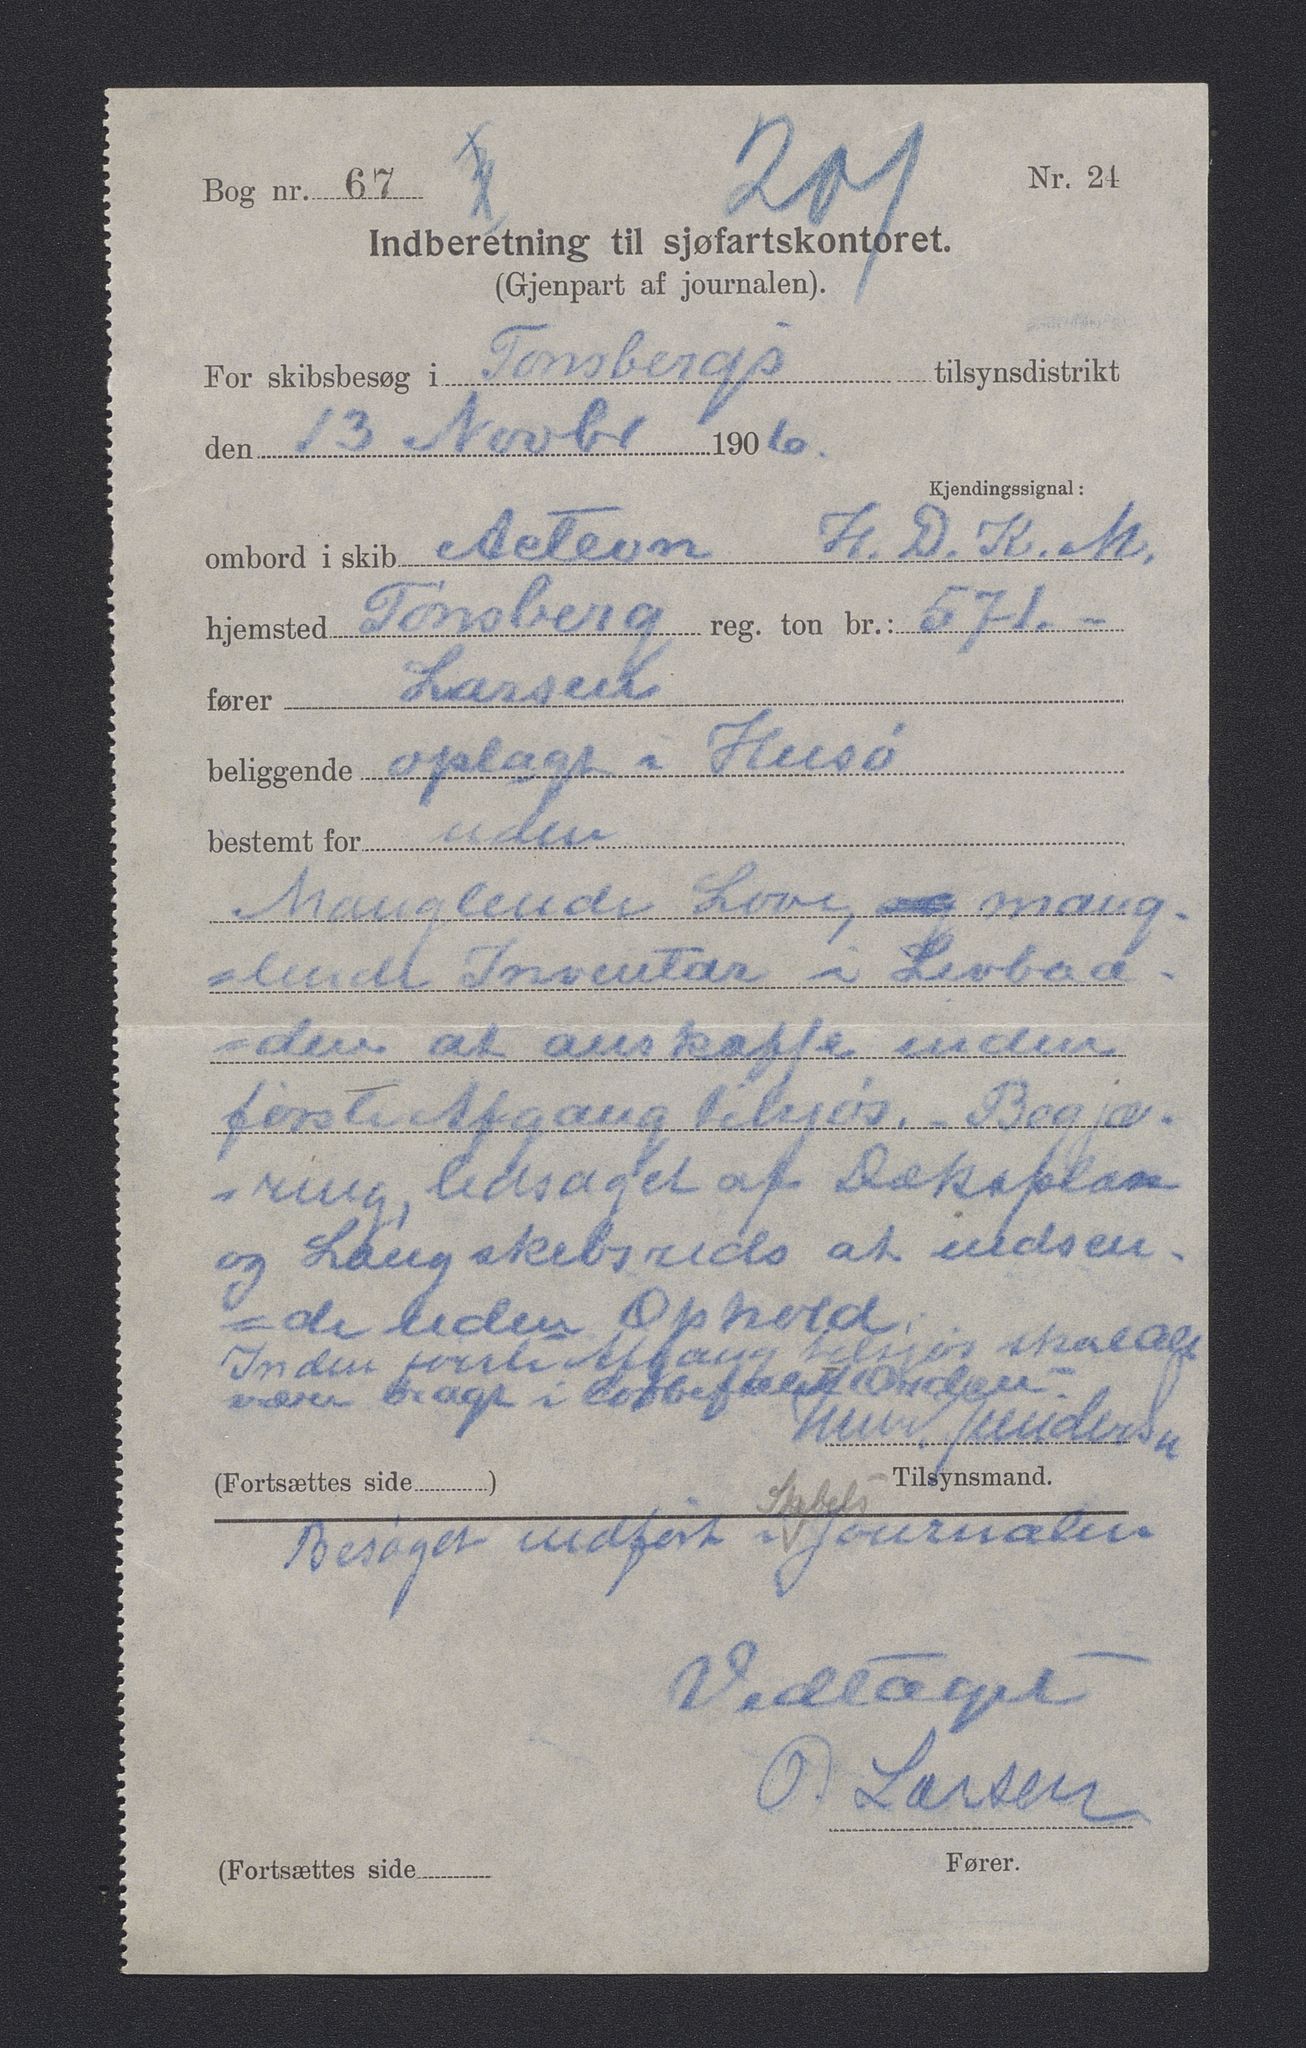 Bog nr. 67
201
Nr. 24
Indberetning til sjøfartskontoret.
(Gjenpart af journalen).
For skibsbesøg i Tønsbergs tilsynsdistrikt
den 13 Novbr 1906.
Kjendingssignal:
ombord i skib Acteon H. D. K. M.
hjemsted Tønsberg reg. ton br.: 571.-
fører Larsen
beliggende oplagt i Husø
bestemt for uden
Manglende Love, og mang-
=lende Inventar i Livbaa-
=den at anskaffe inden
første Afgang tilsjøs. - Begjæ-
=ring, ledsaget af Dæksplan
og Langskibsrids at indsen-
=de uden Ophold.
Inden første Afgang tilsjøs skal Alt
være bragt i lovbefalet Orden-
(Fortsættes side )
Tilsynsmand.
Skibets
Besøget indført i Journalen
Vedtaget
O. Larsen
(Fortsættes side
Fører.